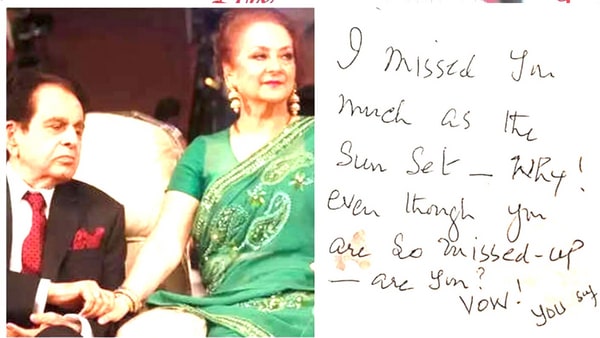 I missed you
much as the
Sun Set - Why!
even though you
are so missed-up
- are you?
VOW! you say